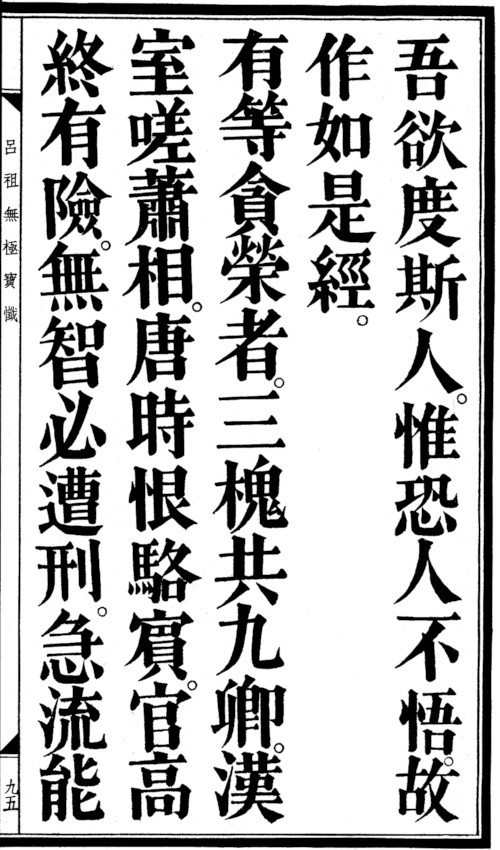 吾欲度斯人。惟恐人不悟。故
作如是經。
有等貪榮者。三槐共九卿。漢
室嗟蕭相。唐時恨駱賓。官高
終有險。無智必遭刑。急流能
呂祖無極寶懺
九五